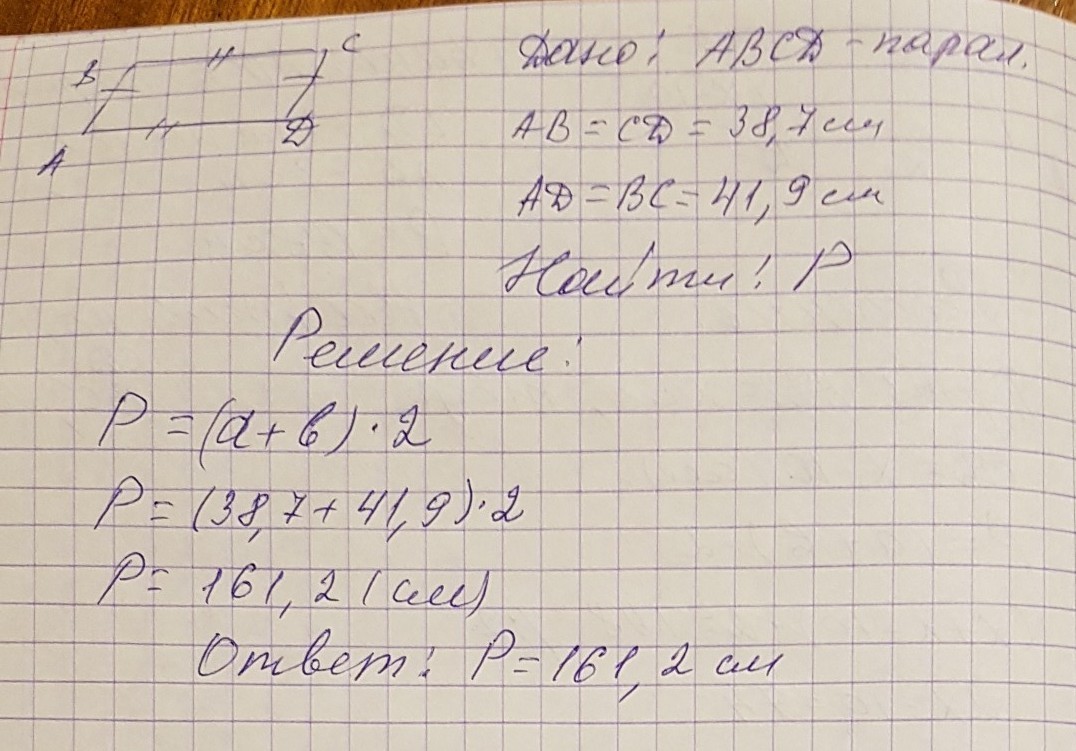 B
C
A
D
Дано: ABCD - парал.
AB = CD = 38,7 см
AD = BC = 41,9 см
Найти: P
Решение:
P = (a + b) · 2
P = (38,7 + 41,9) · 2
P = 161,2 (см)
Ответ: P = 161,2 см